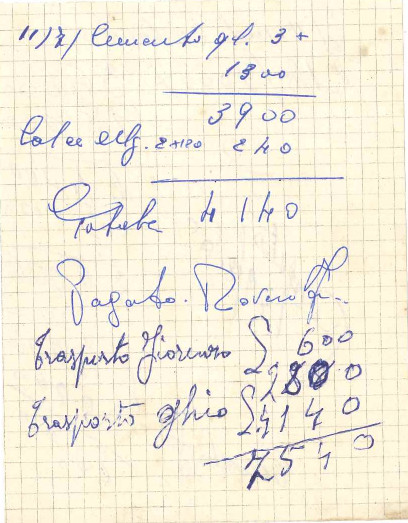 11/7/ Cemento ql. 3 +
1300
3900
Calce 2+120 240
Totale 4140
Pagato.
Trasporto Fiorenzo £ 600
2800
Trasporto Ghio £ 4140
7540